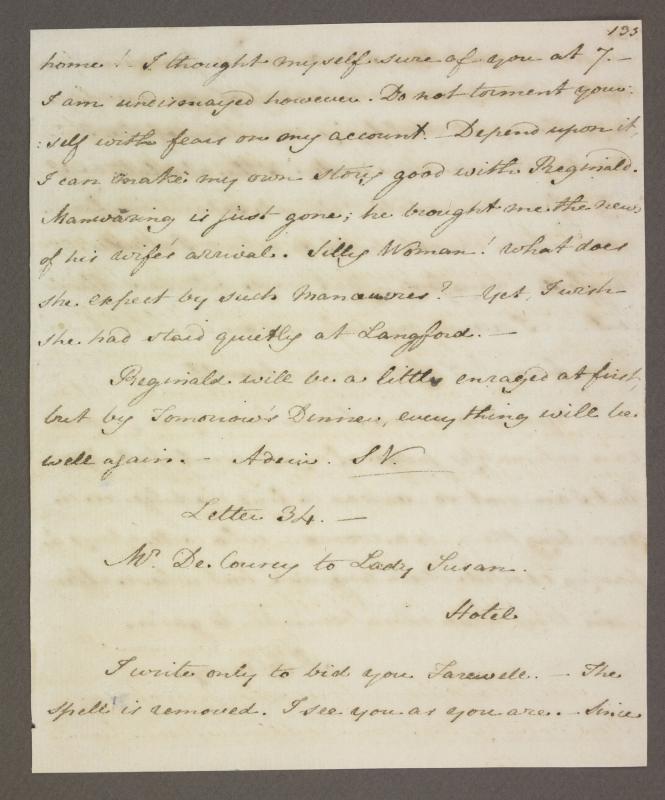 133
home! I thought myself sure of you at 7. —
I am undismayed however. Do not torment your:
:self with fears on my account. — Depend upon it,
I can make my own story good with Reginald.
Manwaring is just gone; he brought me the news
of his wife's arrival. Silly Woman! what does
she expect by such Manœuvres? — Yet, I wish
she had staid quietly at Langford. —
Reginald will be a little enraged at first,
but by Tomorrow's Dinner, everything will be
well again. — Adeiu. S.V.
Letter 34. —
Mr. De Courcy to Lady Susan.
Hotel
I write only to bid you Farewell. — The
spell is removed. I see you as you are. — Since